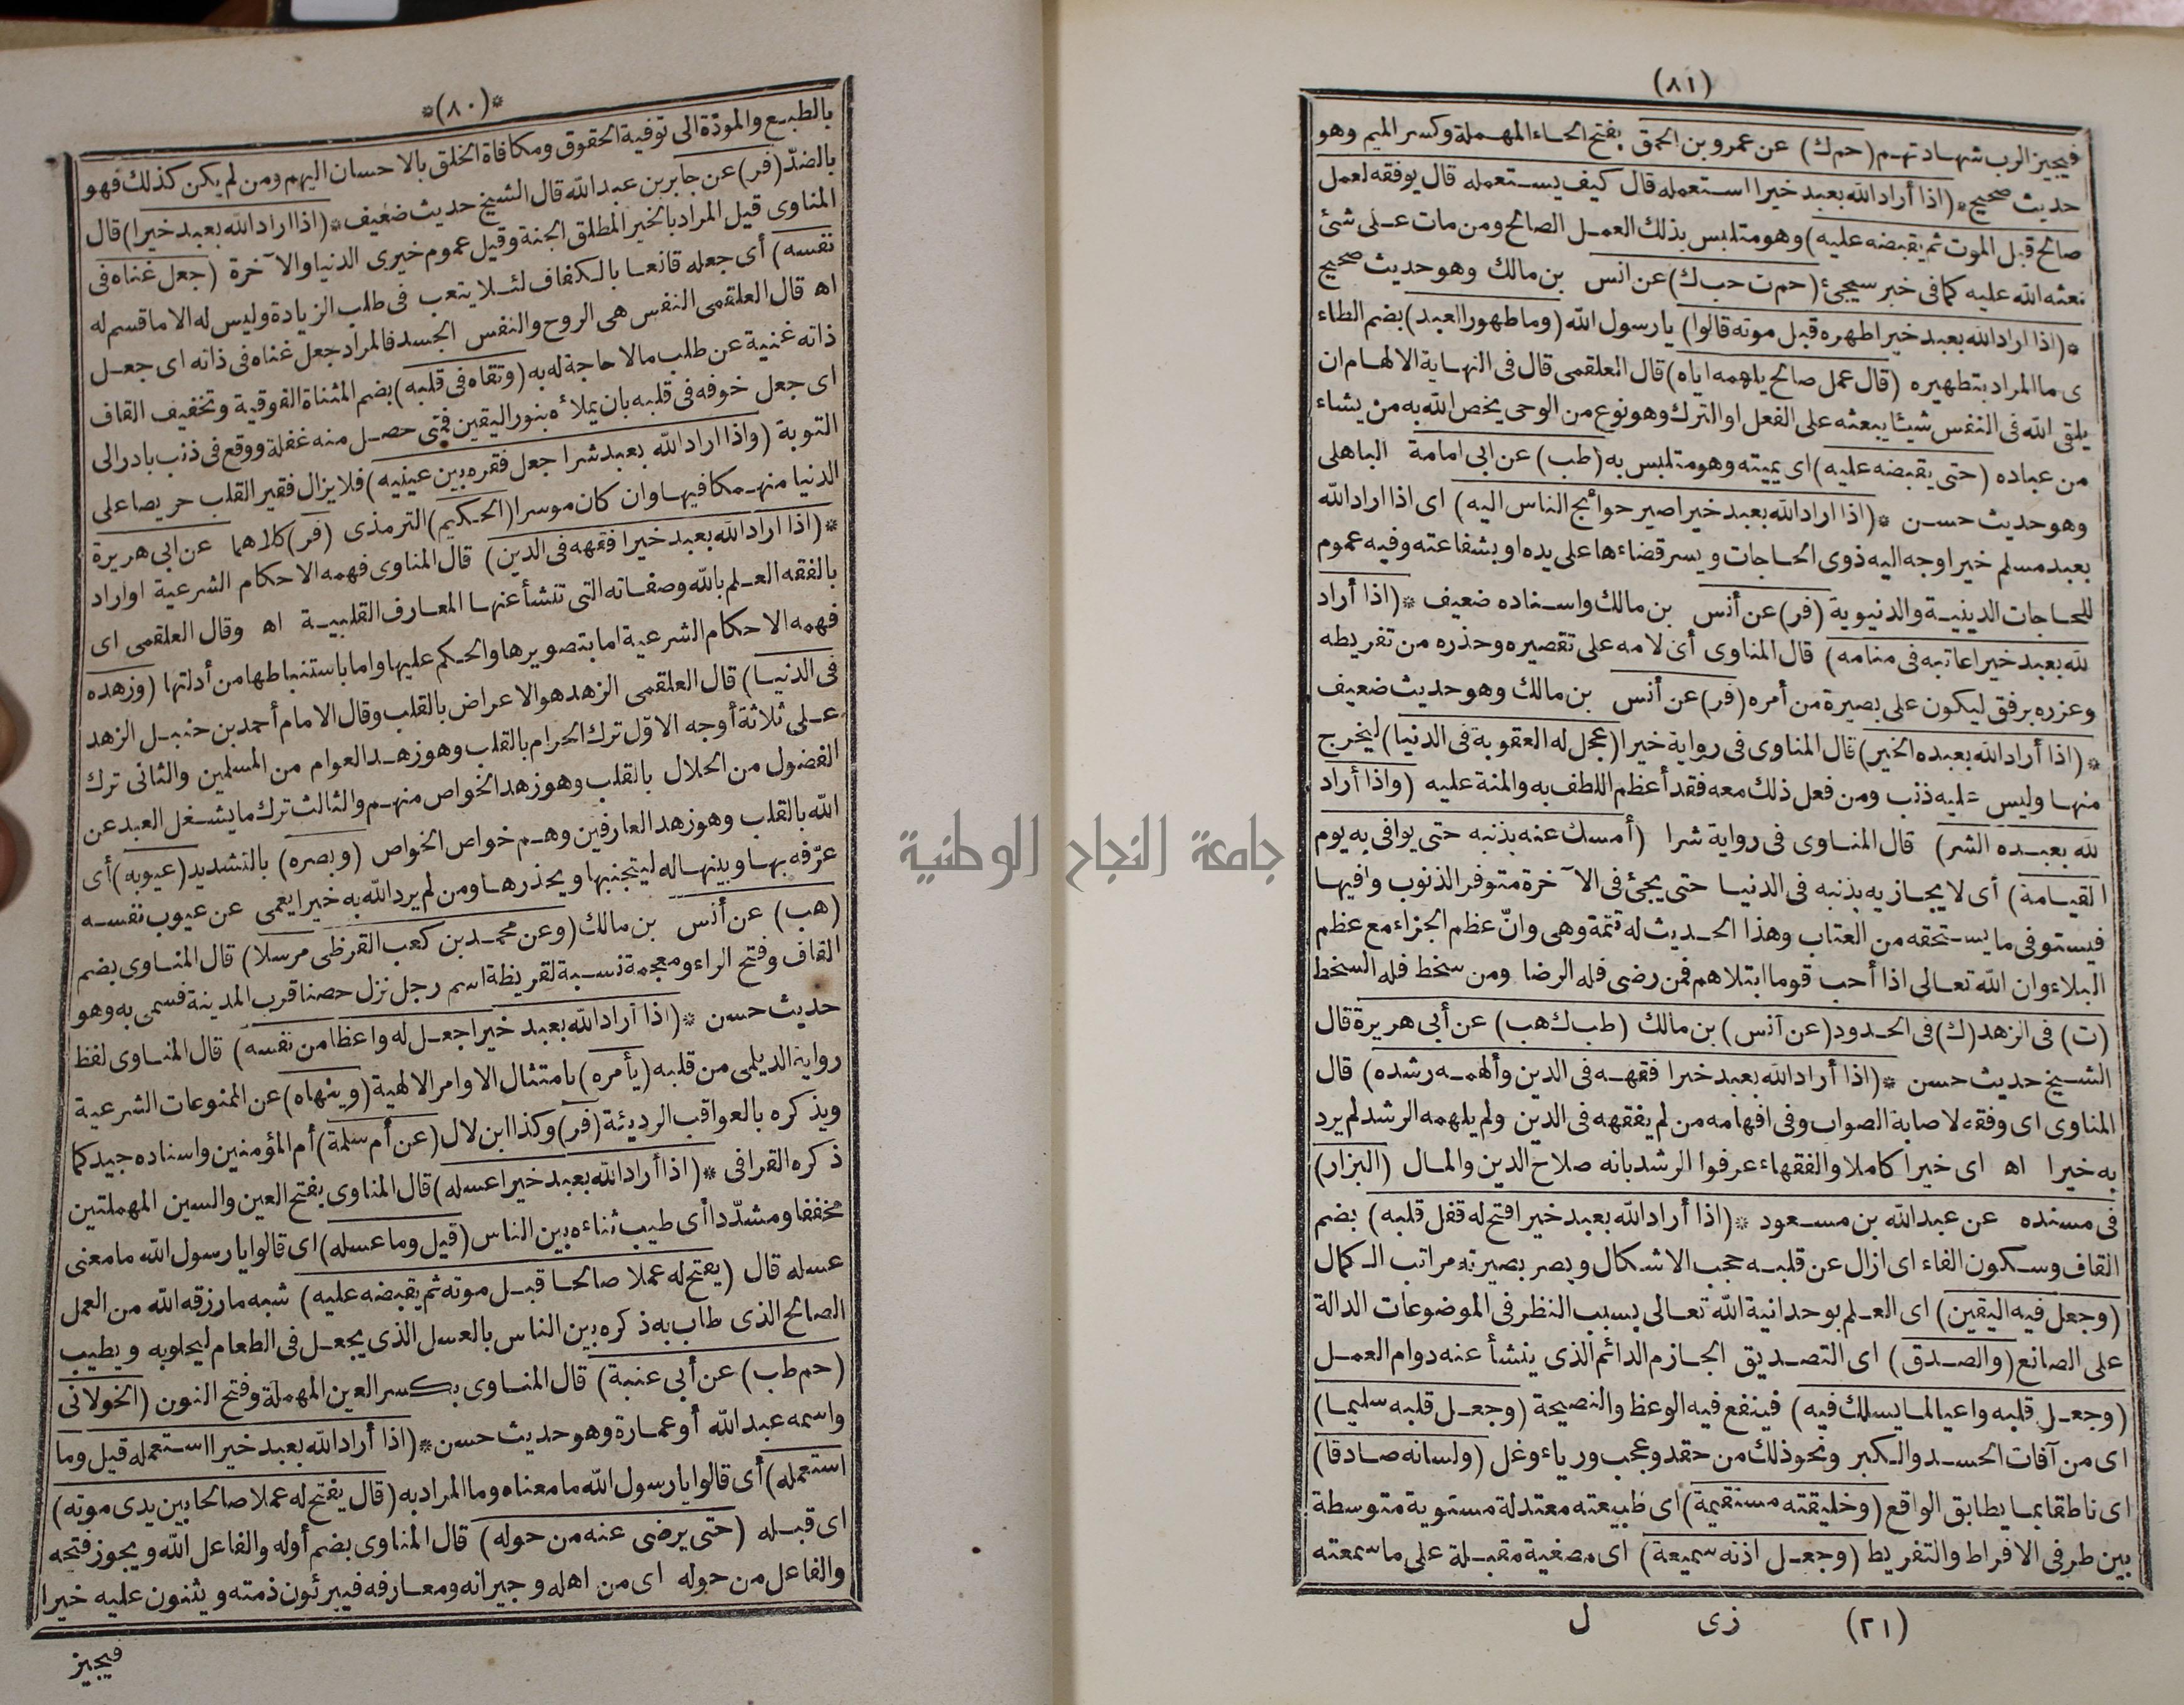 *(٨٠)*
بالطبع والمودّة الى توفية الحقوق ومكافاة الخلق بالاحسان اليهم ومن لم يكن كذلك فهو
بالضدّ (فر) عن جابر بن عبد الله قال الشيخ حديث ضعيف * (اذا اراد الله بعبد خيرا) قال
المناوى قيل المراد بالخير المطلق الجنة وقيل عموم خيرى الدنيا والآخرة (جعل غناه فى
نفسه) أى جعله قانعا بالكفاف لئلا يتعب فى طلب الزيادة وليس له الا ما قسم له
اه قال العلقمى النفس هى الروح والنفس الجسد فالمراد جعل غناه فى ذاته اى جعل
ذاته غنية عن طلب مالا حاجة له به (وتقاه فى قلبه) بضم المثناة الفوقية وتخفيف القاف
اى جعل خوفه فى قلبه بان يملأه بنور اليقين فتى حصل منه غفلة ووقع فى ذنب بادر الى
التوبة (واذا اراد الله بعبد شرا جعل فقره بين عينيه) فلا يزال فقير القلب حريصا على
الدنيا منهمكا فيها وان كان موسرا (الحكيم) الترمذى (فر) كلاهما عن ابى هريرة
* (اذا اراد الله بعبد خيرا فقهه فى الدين) قال المناوى فهمه الاحكام الشرعية او اراد
بالفقه العلم بالله وصفاته التى تنشأ عنها المعارف القلبية اه وقال العلقمى اى
فهمه الاحكام الشرعية اما بتصويرها والحكم عليها واما باستنباطها من أدلتها (وزهده
فى الدنيا) قال العلقمى الزهد هو الاعراض بالقلب وقال الامام أحمد بن حنبل الزهد
على ثلاثة أوجه الاوّل ترك الحرام بالقلب وهو زهد العوام من المسلمين والثانى ترك
الفضول من الحلال بالقلب وهو زهد الخواص منهم والثالث ترك ما يشغل العبد عن
الله بالقلب وهو زهد العارفين وهم خواص الخواص (وبصره) بالتشديد (عيوبه) أى
عرّفه بها وبينها له ليتجنبها ويحذرها ومن لم يرد الله به خيرا يعمى عن عيوب نفسه
(هب) عن أنس بن مالك (وعن محمد بن كعب القرظى مرسلا) قال المناوى بضم
القاف وفتح الراء ومعجمة نسبة لقريظة اسم رجل نزل حصنا قرب المدينة فسمى به وهو
حديث حسن * (اذا أراد الله بعبد خيرا جعل له واعظا من نفسه) قال المناوى لفظ
رواية الديلمى من قلبه (يأمره) بامتثال الاوامر الالهية (وينهاه) عن الممنوعات الشرعية
ويذكره بالعواقب الرديئة (فر) وكذا ابن لال (عن أم سلمة) أم المؤمنين واسناده جيد كما
ذكره القرافى * (اذا أراد الله بعبد خيرا عسله) قال المناوى بفتح العين والسين المهملتين
مخففا ومشدّدا أى طيب ثناءه بين الناس (قيل وما عسله) اى قالوا يا رسول الله ما معنى
عسله قال (يفتح له عملا صالحا قبل موته ثم يقبضه عليه) شبه ما رزقه الله من العمل
الصالح الذى طاب به ذكره بين الناس بالعسل الذى يجعل فى الطعام ليحلو به ويطيب
(حم طب) عن أبى عنبة) قال المناوى بكسر العين المهملة وفتح النون (الخولانى
واسمه عبد الله أو عمارة وهو حديث حسن * (اذا أراد الله بعبد خيرا استعمله قيل وما
استعمله) أى قالوا يا رسول الله ما معناه وما المراد به (قال يفتح له عملا صالحا بين يدى موته)
اى قبله (حتى يرضى عنه من حوله) قال المناوى بضم أوله والفاعل الله ويجوز فتحه
والفاعل من حوله اى من اهله وجيرانه ومعارفه فيبرئون ذمته ويثنون عليه خيرا
فيجيز
(٨١)
فيجيز الرب شهادتهم (حم ك) عن عمرو بن الحمق بفتح الحاء المهملة وكسر الميم وهو
حديث صحيح * (اذا أراد الله بعبد خيرا استعمله قال كيف يستعمله قال يوفقه لعمل
صالح قبل الموت ثم يقبضه عليه) وهو متلبس بذلك العمل الصالح ومن مات على شئ
بعثه الله عليه كما فى خبر سيجئ (حم ت حب ك) عن انس بن مالك وهو حديث صحيح
* (اذا اراد الله بعبد خيرا طهره قبل موته قالوا) يا رسول الله (وما طهور العبد) بضم الطاء
ى ما المراد بتطهيره (قال عمل صالح يلهمه اياه) قال العلقمى قال فى النهاية الالهام ان
يلقى الله فى النفس شيئا يبعثه على الفعل او الترك وهو نوع من الوحى يخص الله به من يشاء
من عباده (حتى يقبضه عليه) اى يميته وهو متلبس به (طب) عن ابى امامة الباهلى
وهو حديث حسن * (اذا اراد الله بعبد خيرا صير حوائج الناس اليه) اى اذا اراد الله
بعبد مسلم خيرا وجه اليه ذوى الحاجات ويسر قضاءها على يده او بشفاعته وفيه عموم
للحاجات الدينية والدنيوية (فر) عن أنس بن مالك واسناده ضعيف * (اذا أراد
لله بعبد خيرا عاتبه فى منامه) قال المناوى أى لامه على تقصيره وحذره من تفريطه
وعزره برفق ليكون على بصيرة من أمره (فر) عن أنس بن مالك وهو حديث ضعيف
* (اذا أراد الله بعبده الخير) قال المناوى فى رواية خيرا (عجل له العقوبة فى الدنيا) ليخرج
منها وليس عليه ذنب ومن فعل ذلك معه فقد أعظم اللطف به والمنة عليه (واذا أراد
لله بعبده الشر) قال المناوى فى رواية شرا (أمسك عنه بذنبه حتى يوافى به يوم
القيامة) أى لا يجازيه بذنبه فى الدنيا حتى يجئ فى الآخرة متوفر الذنوب وافيها
فيستوفى ما يستحقه من العتاب وهذا الحديث له تتمة وهى وانّ عظم الجزاء مع عظم
البلاء وان الله تعالى اذا أحب قوما ابتلاهم فمن رضى فله الرضا ومن سخط فله السخط
(ت) فى الزهد (ك) فى الحدود (عن أنس) بن مالك (طب ك هب) عن أبى هريرة قال
الشيخ حديث حسن * (اذا أراد الله بعبد خيرا فقهه فى الدين وألهمه رشده) قال
المناوى اى وفقه لاصابة الصواب وفى افهامه من لم يفقهه فى الدين ولم يلهمه الرشد لم يرد
به خيرا اه اى خيرا كاملا والفقهاء عرفوا الرشد بانه صلاح الدين والمال (البزار)
فى مسنده عن عبد الله بن مسعود * (اذا أراد الله بعبد خيرا فتح له قفل قلبه) بضم
القاف وسكون الفاء اى ازال عن قلبه حجب الاشكال وبصر بصيرته مراتب الكمال
(وجعل فيه اليقين) اى العلم بوحدانية الله تعالى بسبب النظر فى الموضوعات الدالة
على الصانع (والصدق) اى التصديق الجازم الدائم الذى ينشأ عنه دوام العمل
(وجعل قلبه واعيا لما يسلك فيه) فينفع فيه الوعظ والنصيحة (وجعل قلبه سليما)
اى من آفات الحسد والكبر ونحو ذلك من حقد وعجب ورياء وغل (ولسانه صادقا)
اى ناطقا بما يطابق الواقع (وخليقته مستقيمة) اى طبيعته معتدلة مستوية متوسطة
بين طرفى الافراط والتفريط (وجعل اذنه سميعة) اى مصغية مقبلة على ما سمعته
(٢١) زى ل
جامعة النجاح الوطنية